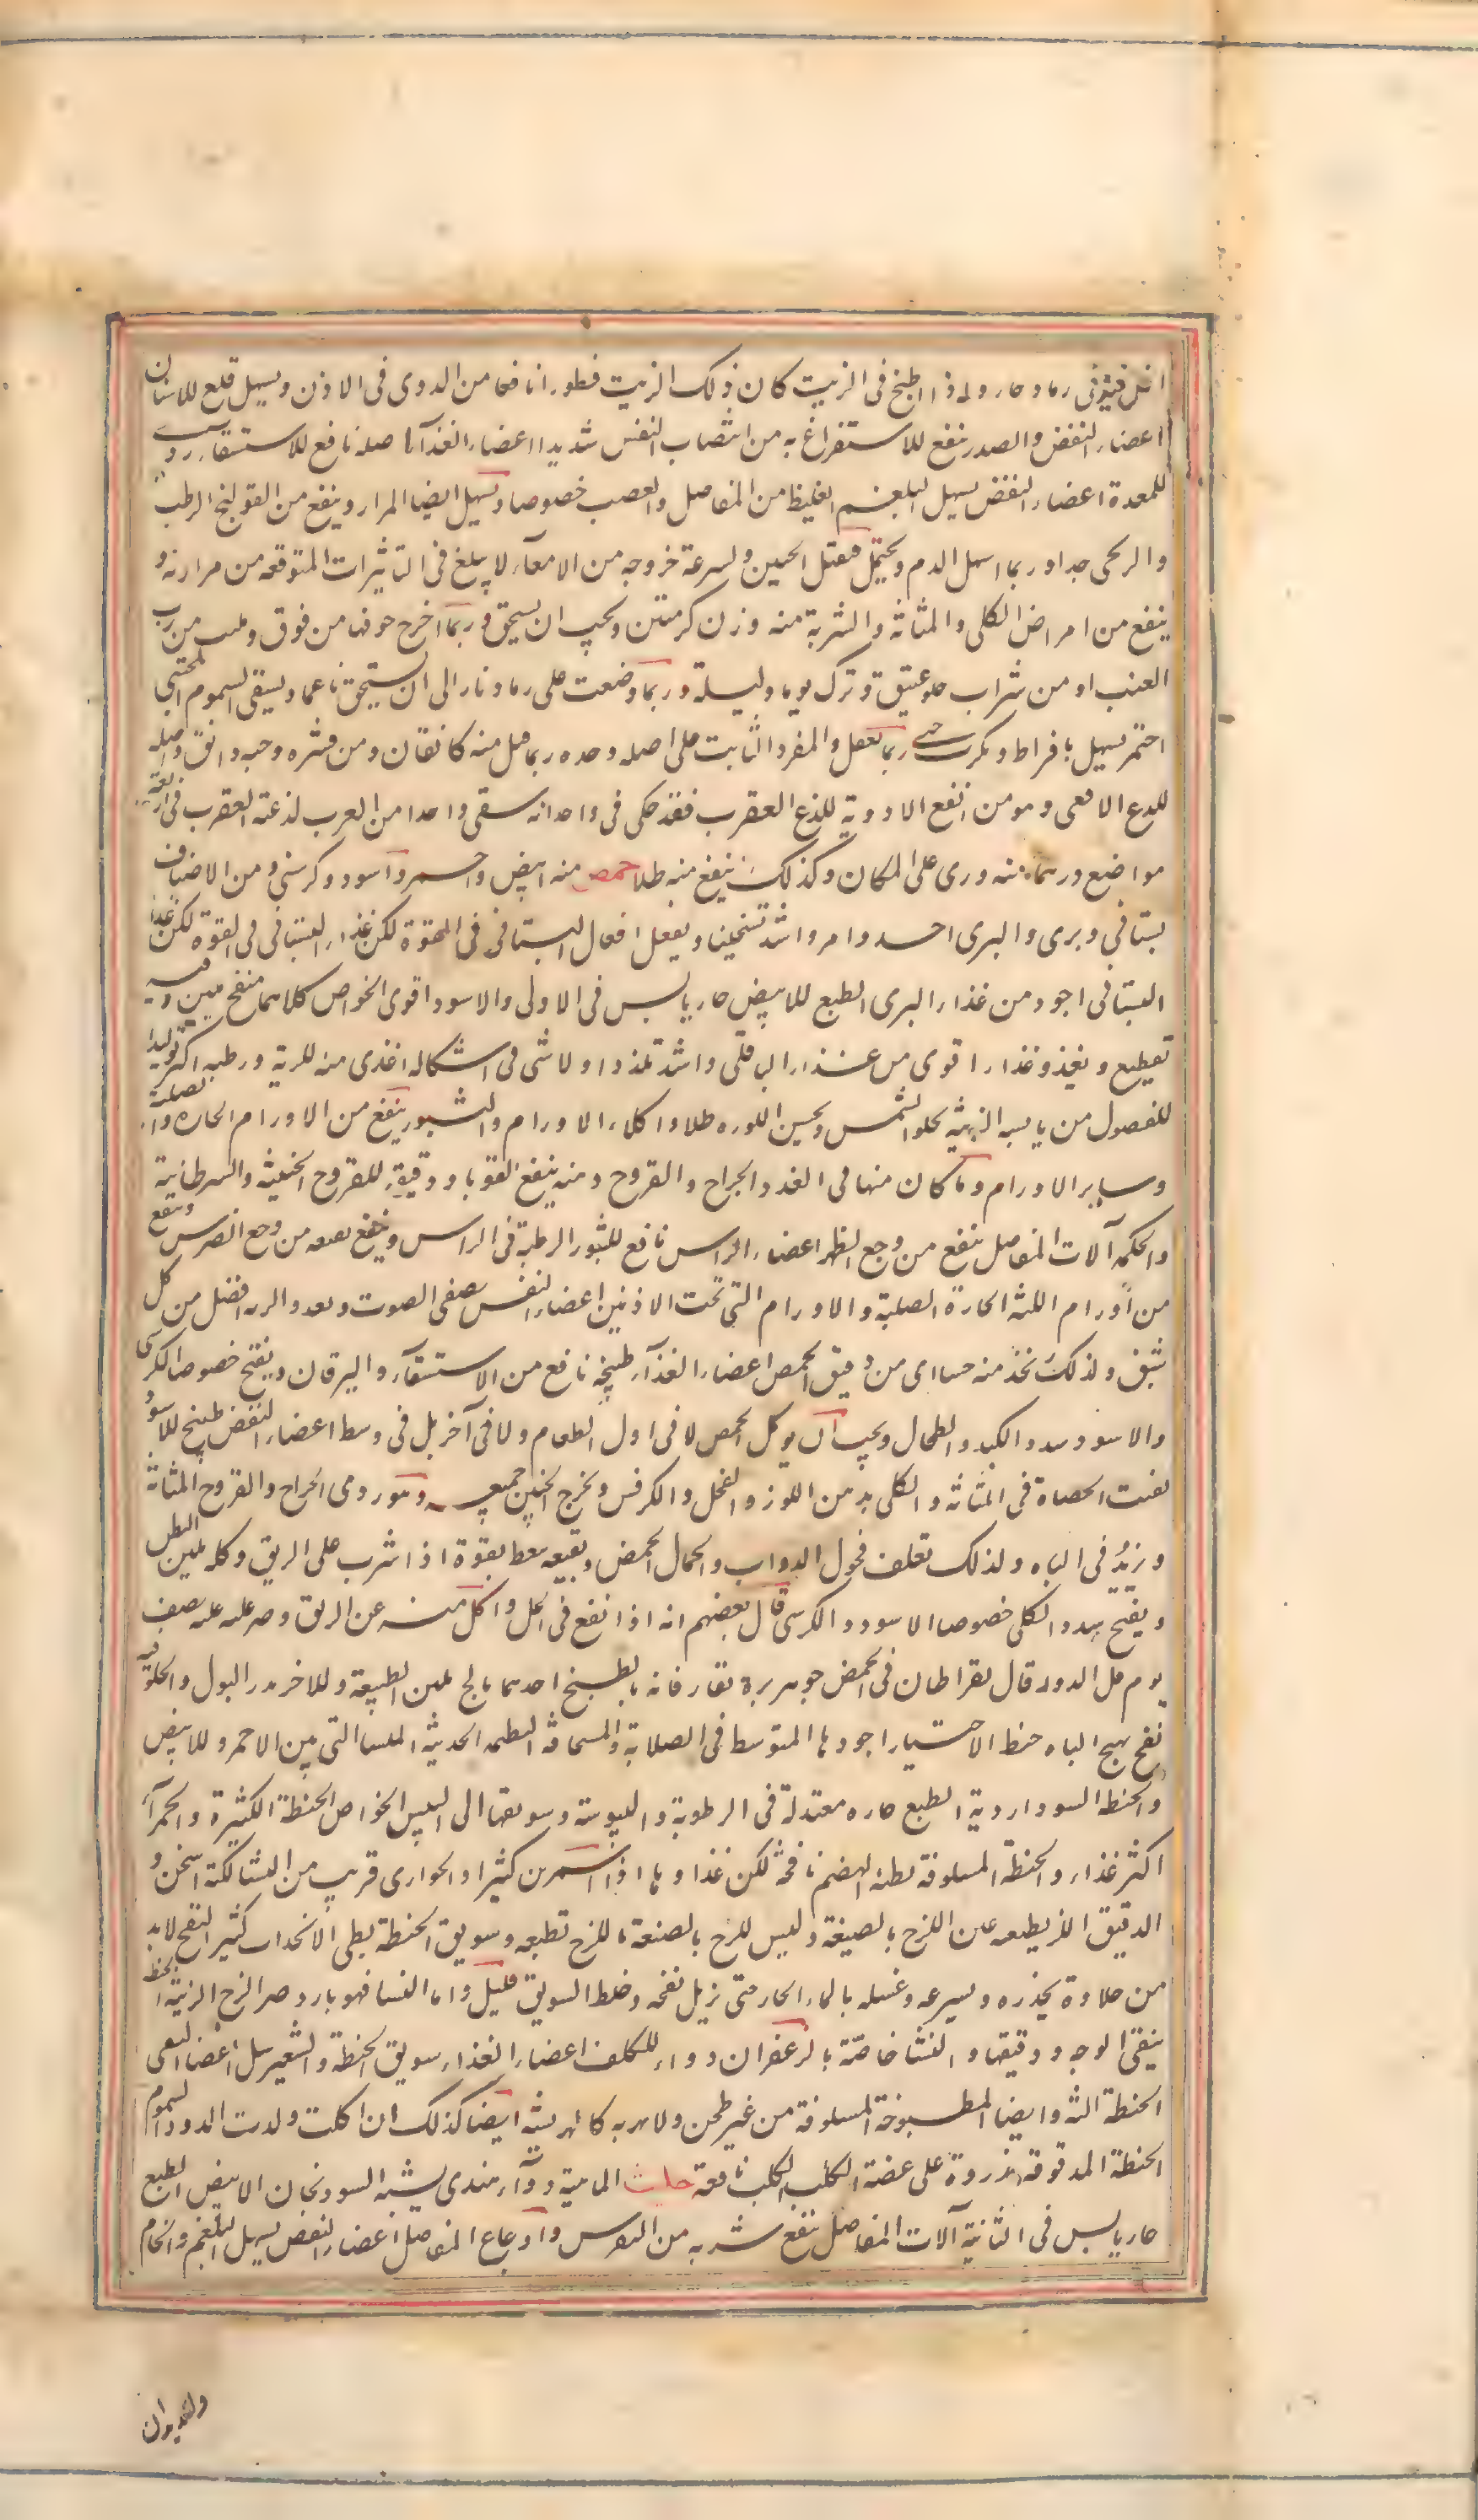 رماد حار ولذا اطبخ فى الزيت كان ذلك الزيت قطورا نافعا من الدوى فى الاذن ويسهل قلع للاسنان
اعضاء النفض والصدر ينفع للاستفراغ به من انتصاب النفس شديدا اعضاء الغذآ اصله نافع للاستسقاء ردى
للمعدة اعضاء النفض يسهل البلغم الغليظ من المفاصل والعصب خصوصا ويسهل ايضا المرار وينفع من القولنج الرطب
والريحى جدا وربما اسهل الدم ويحتمل فيقتل الجنين ولسرعة خروجه من الامعآء لا يبلغ فى التاثيرات المتوقعه من مرارته و
ينفع من امراض الكلى والمثانة والشربة منه وزن كرمتين ويجب ان يسحق وربما اخرج جوفها من فوق وملئت من رب
العنب او من شراب حلو عتيق وترك يوما وليلة وربما وضعت على رماد نار الى ان يسحق ناعما ويسقى السموم المجتنى
اخضر يسهل بافراط ويكرب حتى ربما يقتل والمفرد الثابت على اصله وحده ربما قتل منه كانقان ومن قشره وحبه دانق واصله
للدغ الافعى وهو من انفع الادوية للدغ العقرب فقد حكى فى واحد انه سقى واحدا من العرب لذعته العقرب فى اربعة
مواضع درهما منه ورى على المكان وكذلك ينفع منه طلا حمص منه ابيض واحمر واسود وكرسنى ومن الاصناف
بستانى وبرى والبرى احد وامر واشد تسخينا ويفعل افعال البستانى فى القوة لكن غذاء البستانى فى القوة لكن غذا
البستانى اجود من غذاء البرى الطبع للابيض حار يابس فى الاولى والاسود اقوى الخواص كلاهما منفخ ملين وفيه
تقطيع ويغذو غذاء اقوى من غذاء الباقلى واشد تلذذا ولا شى فى اشكاله اغذى منه للرية ورطبه اكثر توليدا
للفصول من يابسه الزينة يجلو النمش ويحسن اللون طلا واكلا الاورام والبثور ينفع من الاورام الحارة والصلبة
وساير الاورام وما كان منها فى الغدد الجراح والقروح دهنه ينفع القوبا ودقيقه للقروح الخبيثة والسرطانية
والحكه آلات المفاصل ينفع من وجع الظهر اعضاء الراس نافع للبثور الرطبة فى الراس وينفع نقيعه من وجع الضرس وينفع
من اورام اللثة الحارة الصلبة والاورام التى تحت الاذنين اعضاء النفس يصفى الصوت ويغذو الرية افضل من كل
شئ ولذلك يتخذ منه حسا اى من دقيق الحمص اعضاء الغذآ طبيخه نافع من الاستسقآء واليرقان ويفتح خصوصا الكرسى
والاسود سدد الكبد والطحال ويجب ان يوكل الحمص لا فى اول الطعام ولا فى آخره بل فى وسطه اعضاء النفض طبيخ للاسود
يفتت الحصاة فى المثانة والكلى بدهن اللوز والفجل والكرفس ويخرج الجنين جميعه وهو ردى الجراح والقروح المثانة
ويزيد فى الباه ولذلك تعلف فحول الدواب والجمال الحمص ونقيعه ينعظ بقوة اذا شرب على الريق وكله يلين البطن
ويفتح سدد الكلى خصوصا الاسود والكرسى قال بعضهم انه اذا نقع فى الخل واكل منه على الريق وصبر عليه نصف
يوم قتل الدود قال بقراط ان فى الحمص جوهرين يفارقانه بالطبخ احدهما مالح يلين الطبيعة وللاخر يدر البول والحلو فيه
نفخ يهيج الباه حنطة الاختيار اجودها المتوسط فى الصلابة والسخافة العظيمة الحديثة الملسا التى بين الاحمر وللابيض
والحنطة السودا ردية الطبع حارة معتدلة فى الرطوبة واليبوسة وسويقها الى اليبس الخواص الحنطة الكثيرة والحمرآء
اكثر غذاء والحنطة المسلوقة بطية الهضم نافخة لكن غذاوها اذا استمرئ كثيرا والحوارى قريب من النشا لكنه اسخن و
الدقيق اللزج بطبعه غير اللزج بالصنعة وليس للزج بالصنعة ما للزج بطبعه وسويق الحنطة بطى الانحدار كثير النفخ لابد
من حلاوة يحدره بسرعه وغسله بالماء الحار حتى يزيل نفخه وخلط السويق قليل واما النشا فهو بارد لزج الزينة الحنطة
ينقى الوجه ودقيقها والنشا خاصة بالزعفران دواء للكلف اعضاء الغذاء سويق الحنطة والشعير
الحنطة النية وايضا المطبوخة المسلوقة من غير طحن ولا تهرية كالهريسة ايضا كذلك ان اكلت ولدت الدود السموم
الحنطة المدقوقة مذرورة على عضة الكلب الكلب نافعة الماهية دوآء هندى يشبه السورنجان الابيض الطبع
حار يابس فى الثانية آلات المفاصل ينفع شربه من النقرس واوجاع المفاصل اعضاء النفض يسهل البلغم والخام